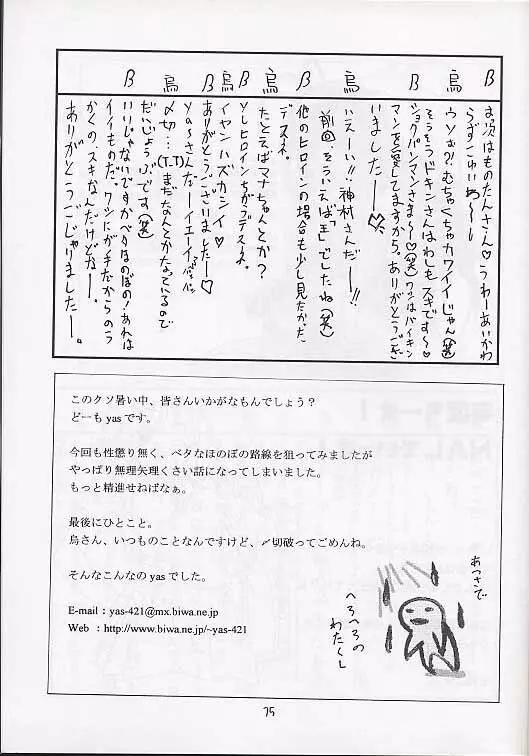 β お次はものたんさん♡うわーあいかわ
らずすごいわ〜〜
烏 ウソぉ?!むちゃくちゃカワイイじゃん(笑)
そうそうドキンさんはわしもスキです〜♡
β ショクパンマンさまっ♡(笑)ワシはバイキン
マンを愛してますから。ありがとうござ
いました――♡
烏 いえーい!!神村さんだー!!
前回、そういえば「王」でしたね(笑)
β 他のヒロインの場合も少し見たかった
デスネ。
烏 たとえばマナちゃんとか?
β ソレヒロインちがうデスネ。
烏 イヤンハズカシイ♡
β ありがとうございました―♡
yasさんだーイエーイ
烏 〆切…(T.T)まだなんとかなっているので
だいじょうぶです(笑)
β いいじゃないですかベタなほのぼの!あれは
イイものだ。ワシにガ手だからのう
かくの、スキなんだけどなー。
ありがとうごじゃりましたー。
このクソ暑い中、皆さんいかがなもんでしょう?
どーも yas です。
今回も性懲り無く、ベタなほのぼの路線を狙ってみましたが
やっぱり無理矢理くさい話になってしまいました。
もっと精進せねばなぁ。
最後にひとこと。
烏さん、いつものことなんですけど、〆切破ってごめんね。
そんなこんなの yas でした。
E-mail : yas-421@mx.biwa.ne.jp
Web : http://www.biwa.ne.jp/~yas-421
あつさで
へろへろの
わたくし
75